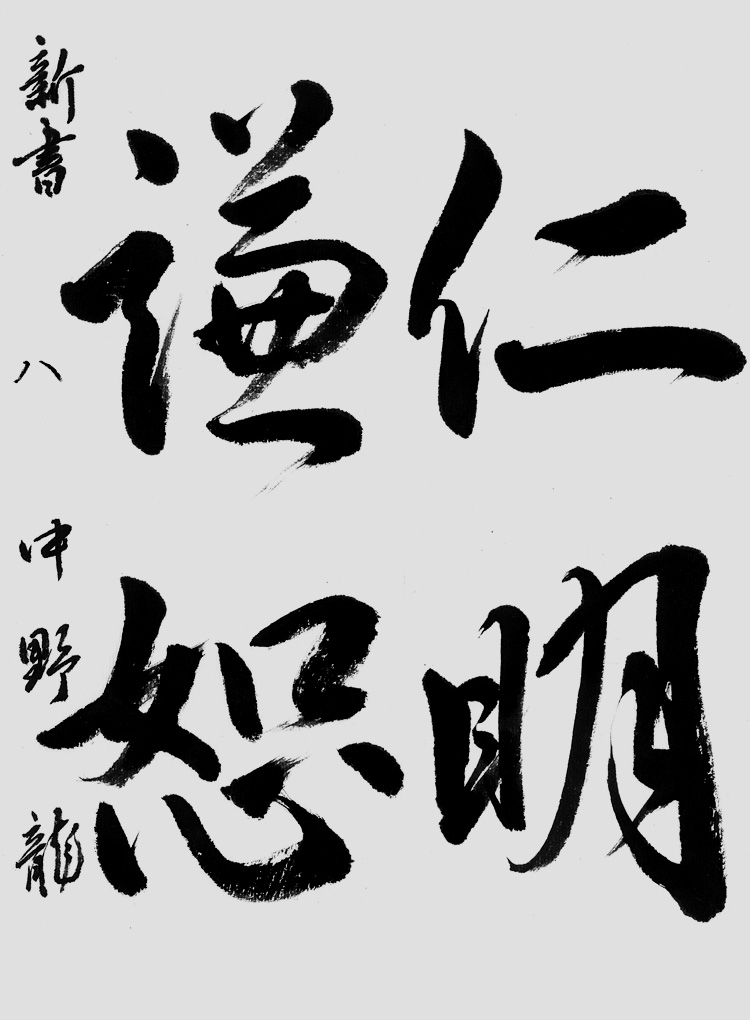 仁明
謙恕
新書 八 中野 龍